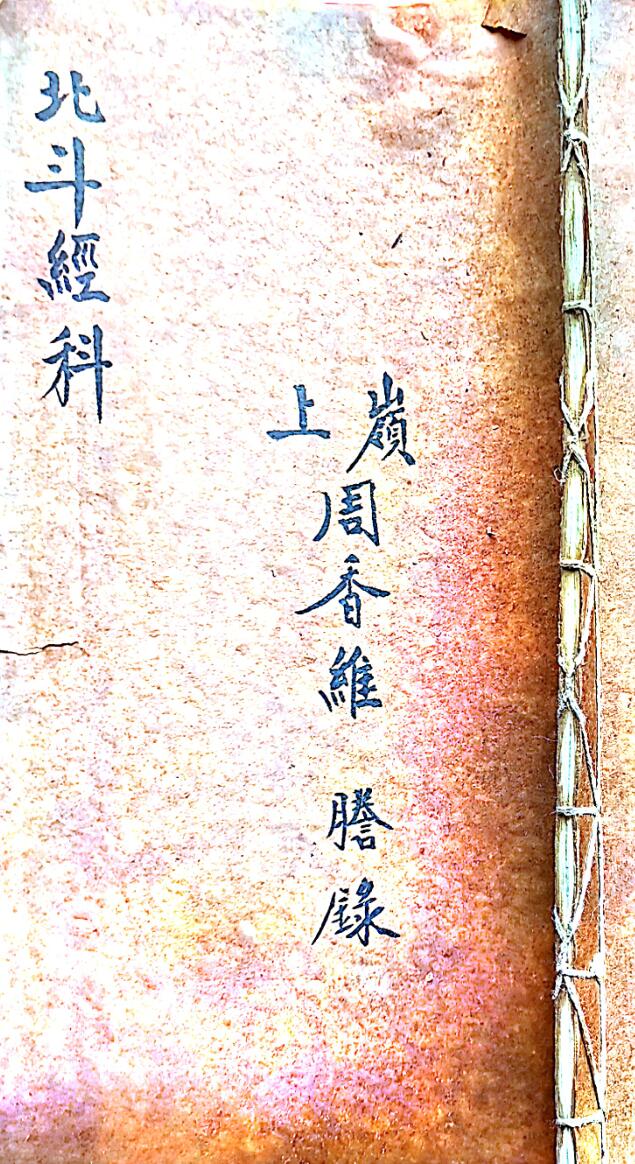 北斗經科
嶺上
周香維 謄錄